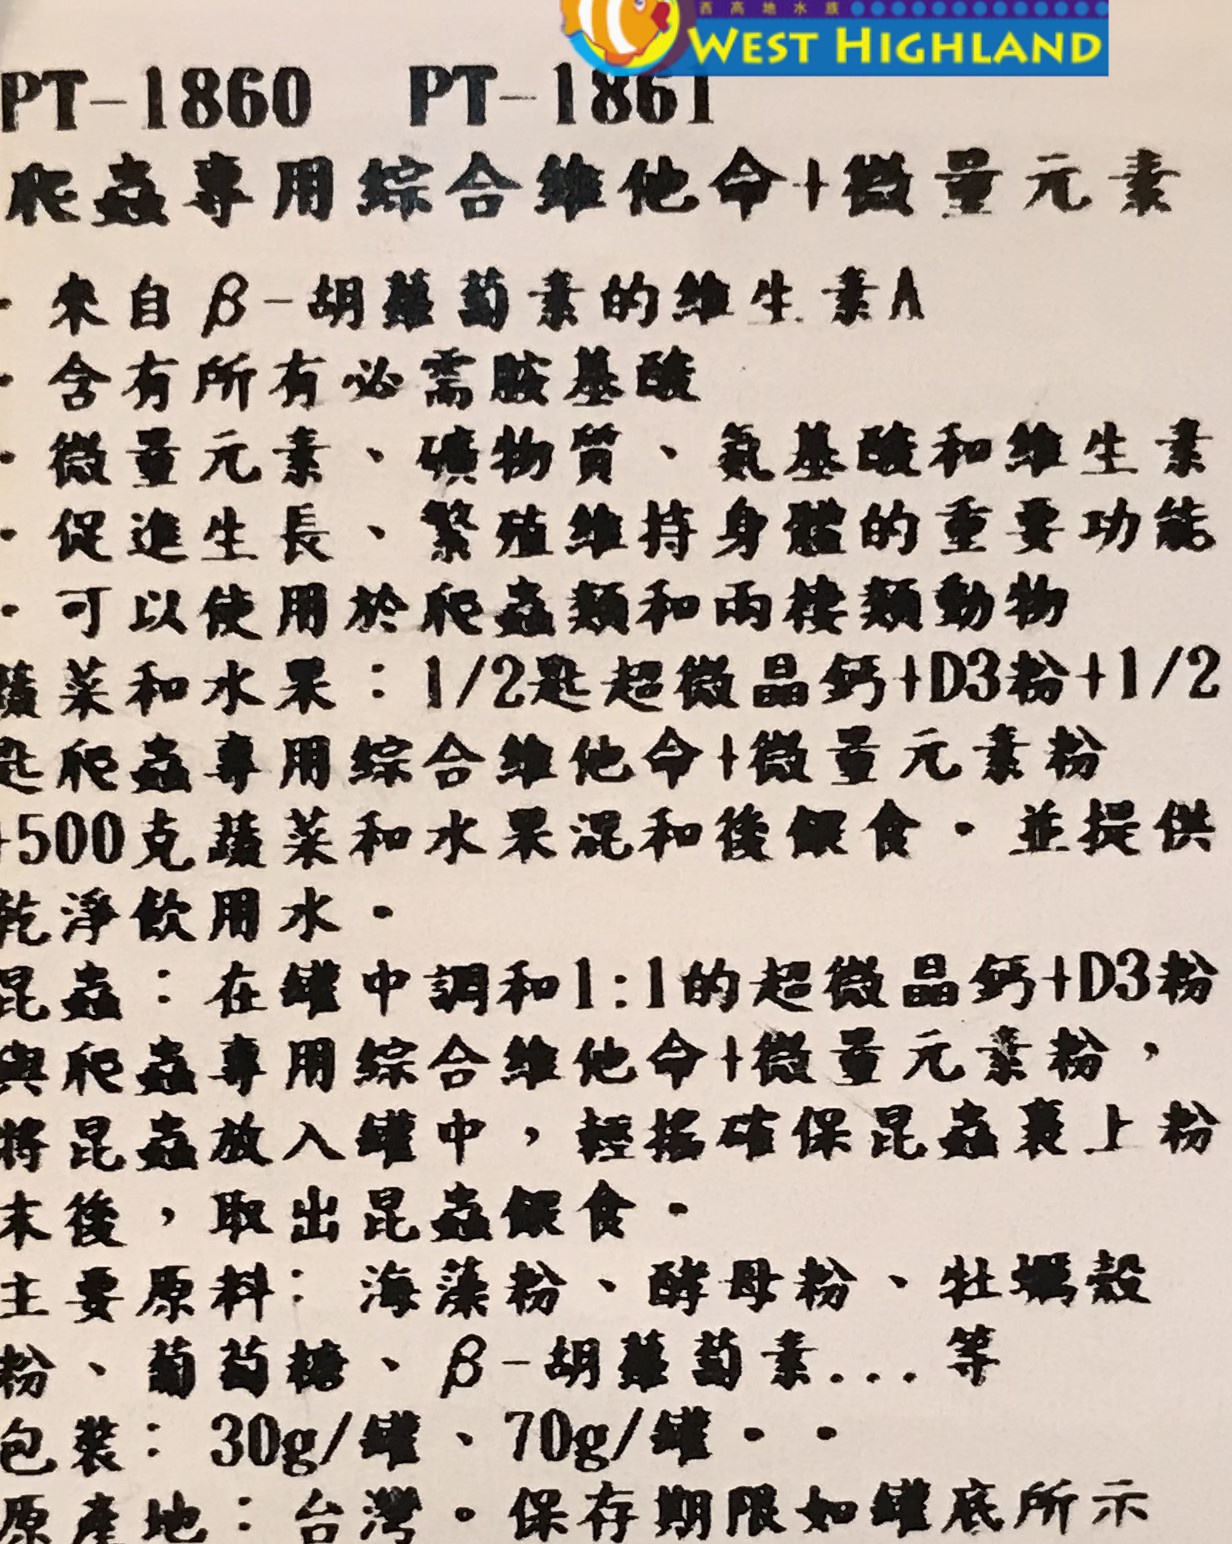 西高地水族
WEST HIGHLAND
PT-1860 PT-1861
爬蟲專用綜合維他命+微量元素
·來自β-胡蘿蔔素的維生素A
·含有所有必需胺基酸
·微量元素、礦物質、氨基酸和維生素
·促進生長、繁殖維持身體的重要功能
·可以使用於爬蟲類和兩棲類動物
蔬菜和水果：1/2匙超微晶鈣+D3粉+1/2
匙爬蟲專用綜合維他命+微量元素粉
+500克蔬菜和水果混和後餵食。並提供
乾淨飲用水。
昆蟲：在罐中調和1:1的超微晶鈣+D3粉
與爬蟲專用綜合維他命+微量元素粉，
將昆蟲放入罐中，輕搖確保昆蟲裹上粉
末後，取出昆蟲餵食。
主要原料：海藻粉、酵母粉、牡蠣殼
粉、葡萄糖、β-胡蘿蔔素...等
包裝：30g/罐、70g/罐。。
原產地：台灣。保存期限如罐底所示